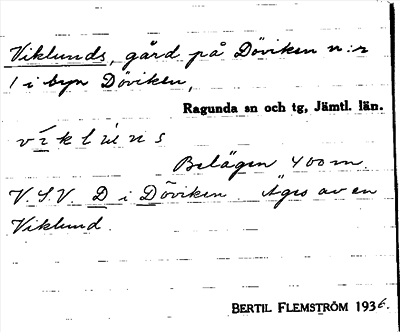 Viklunds, gård på Döviken n:r
1 i byn Döviken,
Ragunda sn och tg, Jämtl. län.
Belägen 400 m.
V.S.V. D i Döviken. Äges av en
Viklund.
BERTIL FLEMSTRÖM 1936.